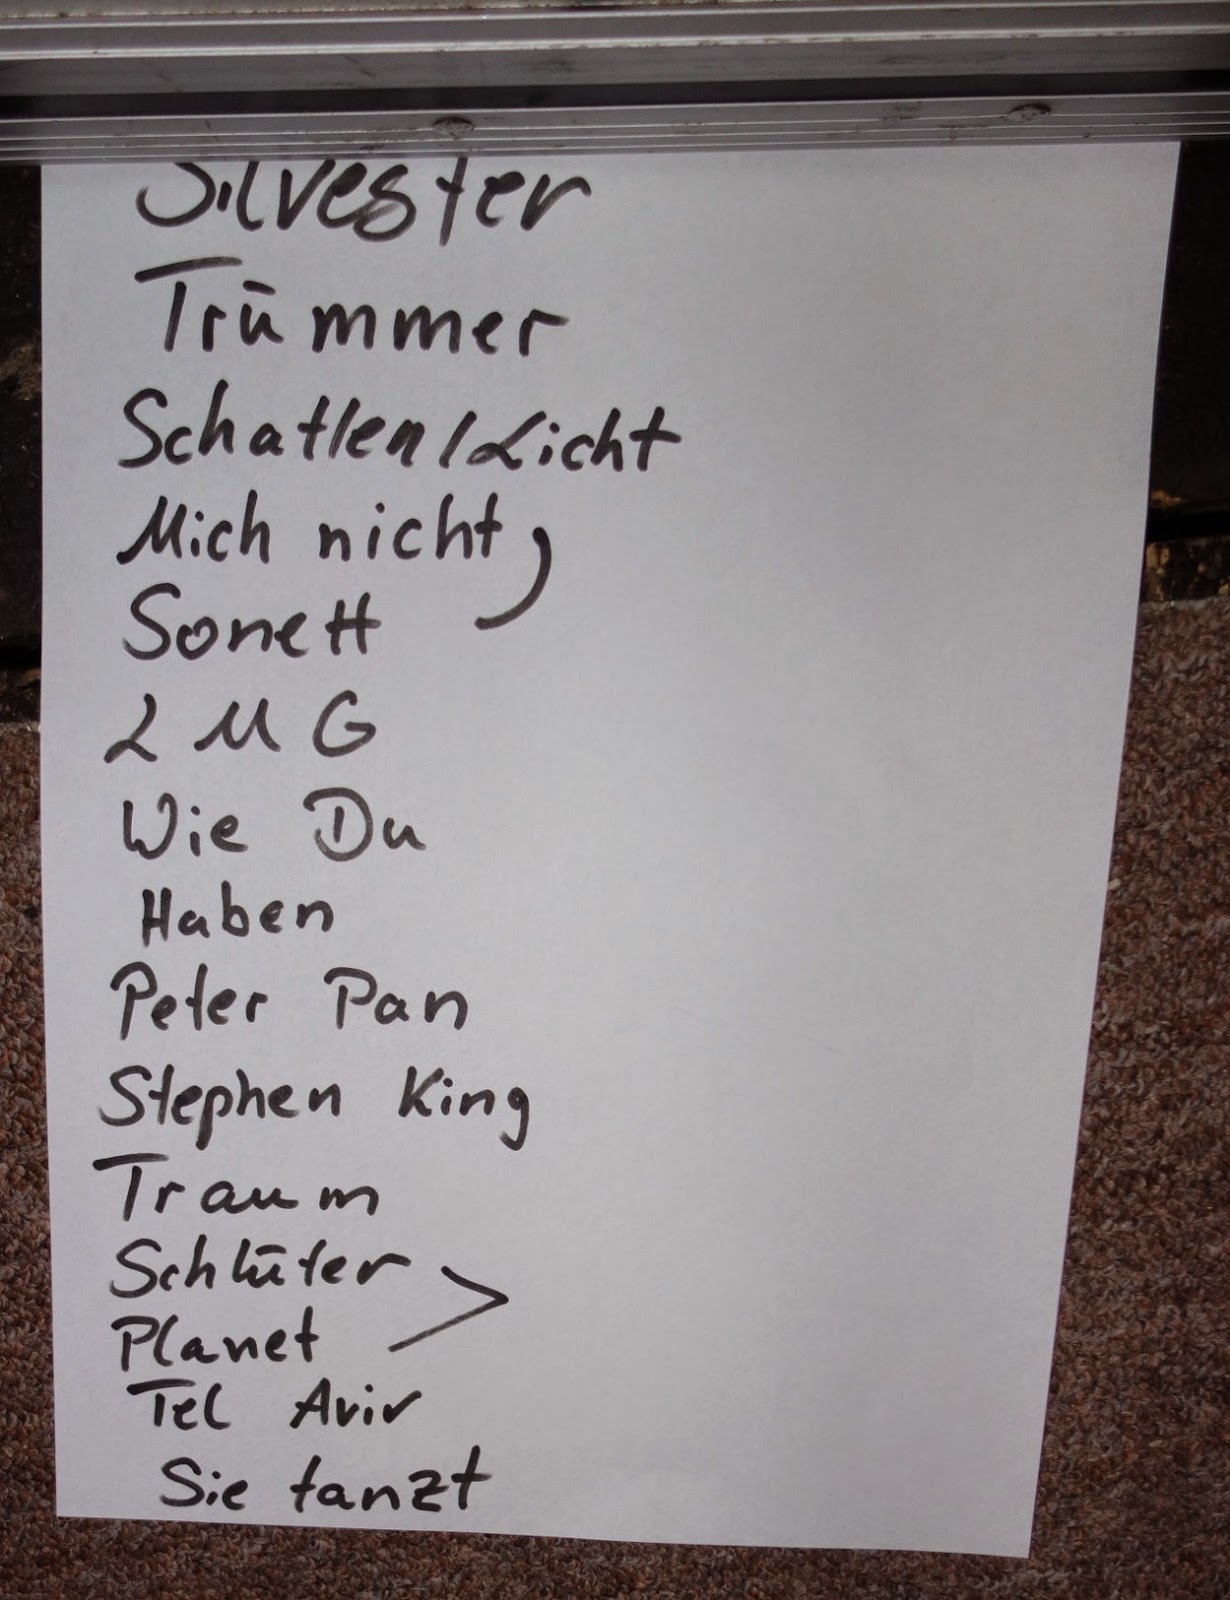 Silvester
Trümmer
Schatten/Licht
Mich nicht
Sonett
LMG
Wie Du
Haben
Peter Pan
Stephen King
Traum
Schlüter
Planet
Tel Aviv
Sie tanzt